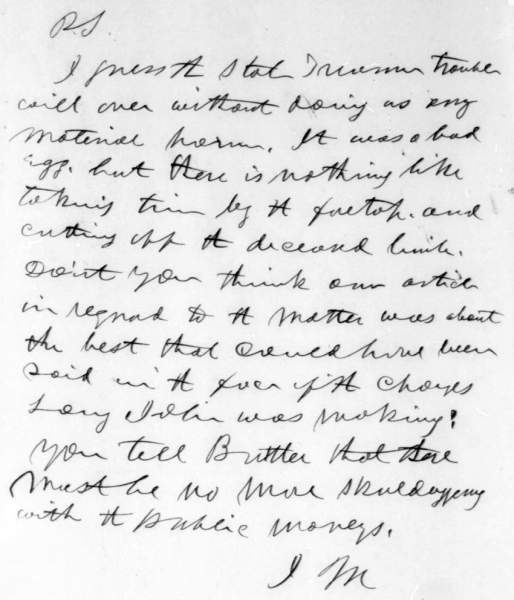 P.S.
I guess th State Treasurer trouble
will over without doing us any
material harm. It was a bad
egg. but there is nothing like
taking time by th foretop. and
cutting off th deceased limb.
Don't you think our article
in regard to th matter was about
the best that could have been
said in th face of th charges
Long John was making?
You tell Buttler that there
must be no more skulduggery
with th public moneys.